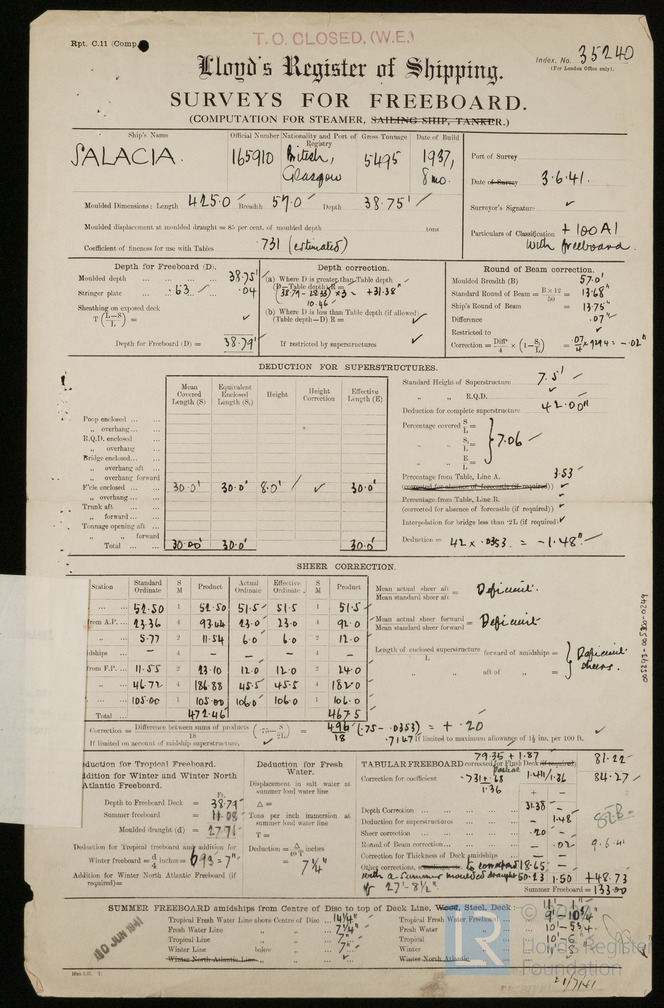 Rpt. C.11 (Comp.
T. O. CLOSED. (W.E.)
Index. No. 35240
(For London Office only).
Lloyd's Register of Shipping.
SURVEYS FOR FREEBOARD.
(COMPUTATION FOR STEAMER, SAILING SHIP, TANKER.)
Ship's Name
Official Number
Nationality and Port of Registry
Gross Tonnage
Date of Build
SALACIA.
165910
British, Glasgow
5495
1937, 8 mo.
Port of Survey
Date of Survey 3.6.41.
Surveyor's Signature
Particulars of Classification +100A1 with freeboard.
Moulded Dimensions: Length 425.0' Breadth 57.0' Depth 38.75'
Moulded displacement at moulded draught = 85 per cent. of moulded depth tons
Coefficient of fineness for use with Tables .731 (estimated)
Depth for Freeboard (D).
Moulded depth ... 38.75'
Stringer plate ... .63 .04
Sheathing on exposed deck
T (L-S/L) =
Depth for Freeboard (D) = 38.79'
Depth correction.
(a) Where D is greater than Table depth
(D—Table depth) R =
(38.79 - 28.33) x 3 = +31.38"
10.46
(b) Where D is less than Table depth (if allowed)
(Table depth—D) R =
If restricted by superstructures
Round of Beam correction.
Moulded Breadth (B) 57.0'
Standard Round of Beam = B×12/50 = 13.68"
Ship's Round of Beam = 13.75"
Difference .07"
Restricted to
Correction = Diffce/4 × (1-S₁/L) = .07/4 x .9294 = -.02"
DEDUCTION FOR SUPERSTRUCTURES.
Mean Covered Length (S)
Equivalent Enclosed Length (S₁)
Height
Height Correction
Effective Length (E)
Poop enclosed ...
„ overhang ...
R.Q.D. enclosed
„ overhang
Bridge enclosed...
„ overhang aft ...
„ overhang forward
F'cle enclosed ... 30.0' 30.0' 8.0' 30.0'
„ overhang ...
Trunk aft ...
„ forward ...
Tonnage opening aft ...
„ „ forward
Total ... 30.00' 30.0' 30.0'
Standard Height of Superstructure 7.5'
„ „ R.Q.D.
Deduction for complete superstructure 42.00"
Percentage covered S/L =
„ „ S₁/L = 7.06
„ „ E/L =
Percentage from Table, Line A. 3.53
(corrected for absence of forecastle (if required))
Percentage from Table, Line B.
(corrected for absence of forecastle (if required))
Interpolation for bridge less than .2L (if required)
Deduction = 42 x .0353 = -1.48"
SHEER CORRECTION.
Station
Standard Ordinate
S M
Product
Actual Ordinate
Effective Ordinate
S M
Product
... 52.50 1 52.50 51.5 51.5 1 51.5
from A.P. ... 23.36 4 93.44 23.0 23.0 4 92.0
„ 5.77 2 11.54 6.0 6.0 2 12.0
idships ... – 4 – – – 4 –
from F.P. ... 11.55 2 23.10 12.0 12.0 2 24.0
„ 46.72 4 186.88 45.5 45.5 4 182.0
... 105.00 1 105.00 106.0 106.0 1 106.0
Total ... 472.46 467.5
Mean actual sheer aft
Mean standard sheer aft = Deficient.
Mean actual sheer forward
Mean standard sheer forward = Deficient
Length of enclosed superstructure forward of amidships =
L
„ aft of „ =
Deficient sheers.
Correction = Difference between sums of products/18 (.75 - S/2L) = 4.96/18 (.75 - .0353) = + .20
.7147
If limited on account of midship superstructure,
If limited to maximum allowance of 1½ ins. per 100 ft.
005293-005300-0249
eduction for Tropical Freeboard.
ddition for Winter and Winter North
Atlantic Freeboard.
Ft.
Depth to Freeboard Deck = 38.79
Summer freeboard = 11.08
Moulded draught (d) = 27.71
Deduction for Tropical freeboard and addition for
Winter freeboard = d/4 inches = 6.93 = 7"
Addition for Winter North Atlantic Freeboard (if
required) =
Deduction for Fresh Water.
Displacement in salt water at summer load water line
Δ =
Tons per inch immersion at summer load water line
T =
Deduction = Δ/40T inches
= 7¼"
79.35 + 1.87 81.22
TABULAR FREEBOARD corrected for Flush Deck (if required)
Correction for coefficient .731 + .68 / 1.36 1.411/1.36 84.27
+ –
Depth Correction ... 31.38 –
Deduction for superstructures ... – 1.48
Sheer correction ... .20 –
Round of Beam correction ... – .02
Correction for Thickness of Deck amidships –
Other corrections, to correspond 18.65 –
with a summer moulded draught 50.23 1.50 +48.73
of 27'-8½" Summer Freeboard = 133.00
9.6.41
SUMMER FREEBOARD amidships from Centre of Disc to top of Deck Line, Wood, Steel, Deck:
Tropical Fresh Water Line above Centre of Disc ... 14¼"
Fresh Water Line „ „ ... 7¼"
Tropical Line „ „ ... 7"
Winter Line below „ ... 7"
Winter North Atlantic Line „ „
Tropical Fresh Water Freeboard 9'-10¾"
Fresh Water „
Tropical „
Winter „
Winter North Atlantic „
10 JUN 1941
LR
Lloyd's Register
Foundation
21/7/41